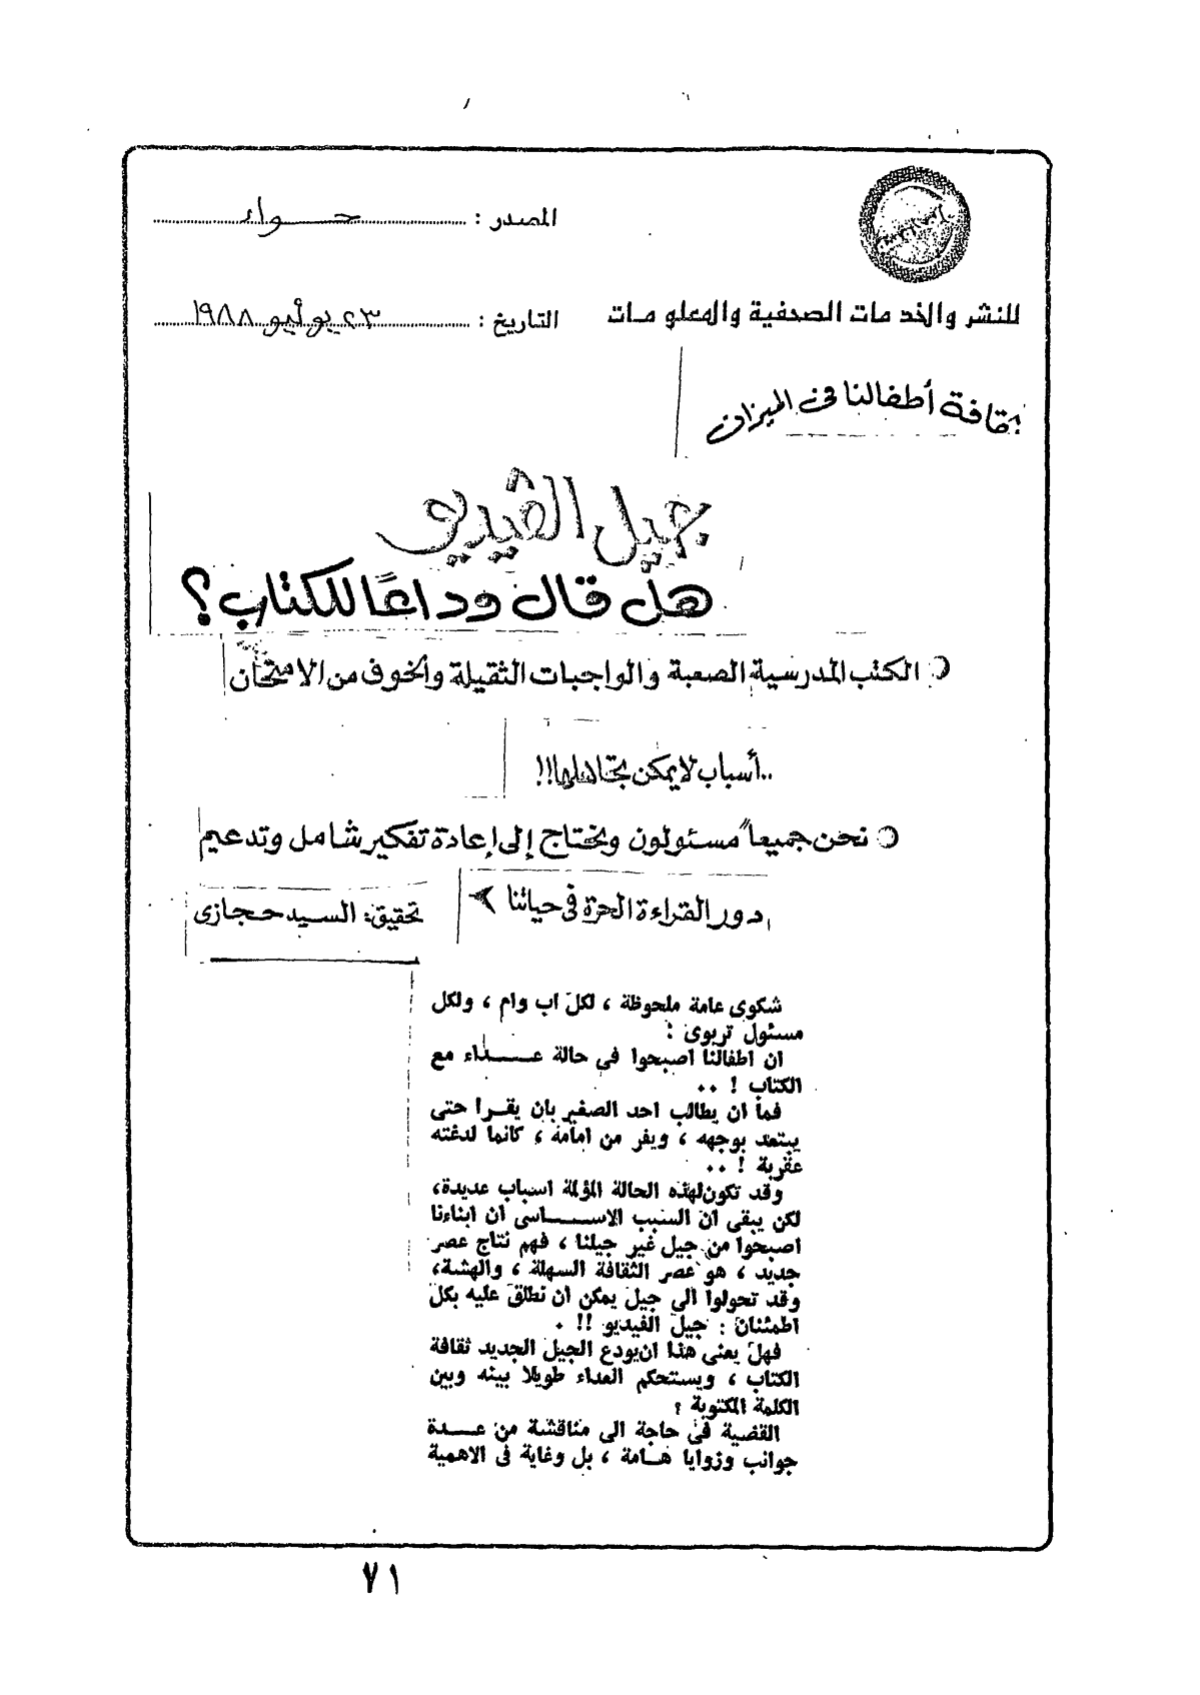 المصدر : حواء
للنشر والخدمات الصحفية والمعلومات
التاريخ : ٢٣ يوليو ١٩٨٨
ثقافة أطفالنا فى الميزان
جيل الڤيديو
هل قال وداعًا للكتاب؟
الكتب المدرسية الصعبة والواجبات الثقيلة والخوف من الامتحان
..أسباب لا يمكن تجاهلها!!
نحن جميعاً مسئولون ونحتاج إلى إعادة تفكير شامل وتدعيم
دور القراءة الحرة فى حياتنا
تحقيق: السيد حجازى
شكوى عامة ملحوظة ، لكل اب وام ، ولكل
مسئول تربوى :
ان اطفالنا اصبحوا فى حالة عـــداء مع
الكتاب ! ..
فما ان يطالب احد الصغير بان يقـرا حتى
يبتعد بوجهه ، ويفر من امامه ، كانما لدغته
عقربة ! ..
وقد تكون لهذه الحالة المؤلمة اسباب عديدة،
لكن يبقى ان السبب الاســـاسى ان ابناءنا
اصبحوا من جيل غير جيلنا ، فهم نتاج عصر
جديد ، هو عصر الثقافة السهلة ، والهشة،
وقد تحولوا الى جيل يمكن ان نطلق عليه بكل
اطمئنان : جيل الفيديو !! .
فهل يعنى هذا ان يودع الجيل الجديد ثقافة
الكتاب ، ويستحكم العداء طويلا بينه وبين
الكلمة المكتوبة ؟
القضية فى حاجة الى مناقشة من عــدة
جوانب وزوايا هـامة ، بل وغاية فى الاهمية
٧١